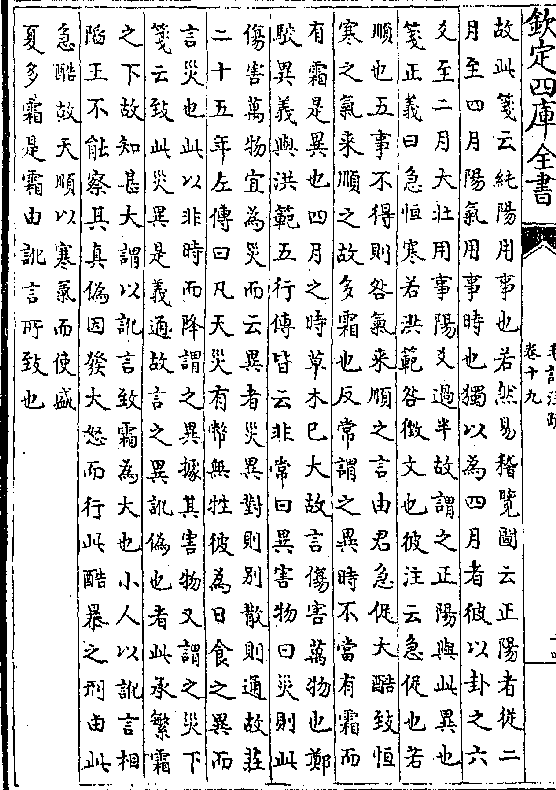 欽定四庫全書
卷十九
故此箋云純陽用事也若然易稽覽圖云正陽者從二
月至四月陽氣用事時也獨以為四月者彼以卦之六
爻至二月大壯用事陽爻過半故謂之正陽與此異也
箋正義曰急恒寒若洪範咎徵文也彼注云急促也若
順也五事不得則咎氣來順之言由君急促大酷致恒
寒之氣來順之故多霜也反常謂之異時不當有霜而
有霜是異也四月之時草木已大故言傷害萬物也鄭
駮異義與洪範五行傳皆云非常曰異害物曰災則此
傷害萬物宜為災而云異者災異對則別散則通故莊
二十五年左傳曰凡天災有幣無牲彼為日食之異而
言災也此以非時而降謂之異據其害物又謂之災下
箋云致此災異是義通故言之異訛偽也者此承繁霜
之下故知甚大謂以訛言致霜為大也小人以訛言相
陷王不能察其真偽因發大怒而行此酷暴之刑由此
急酷故天順以寒氣而使盛
夏多霜是霜由訛言所致也